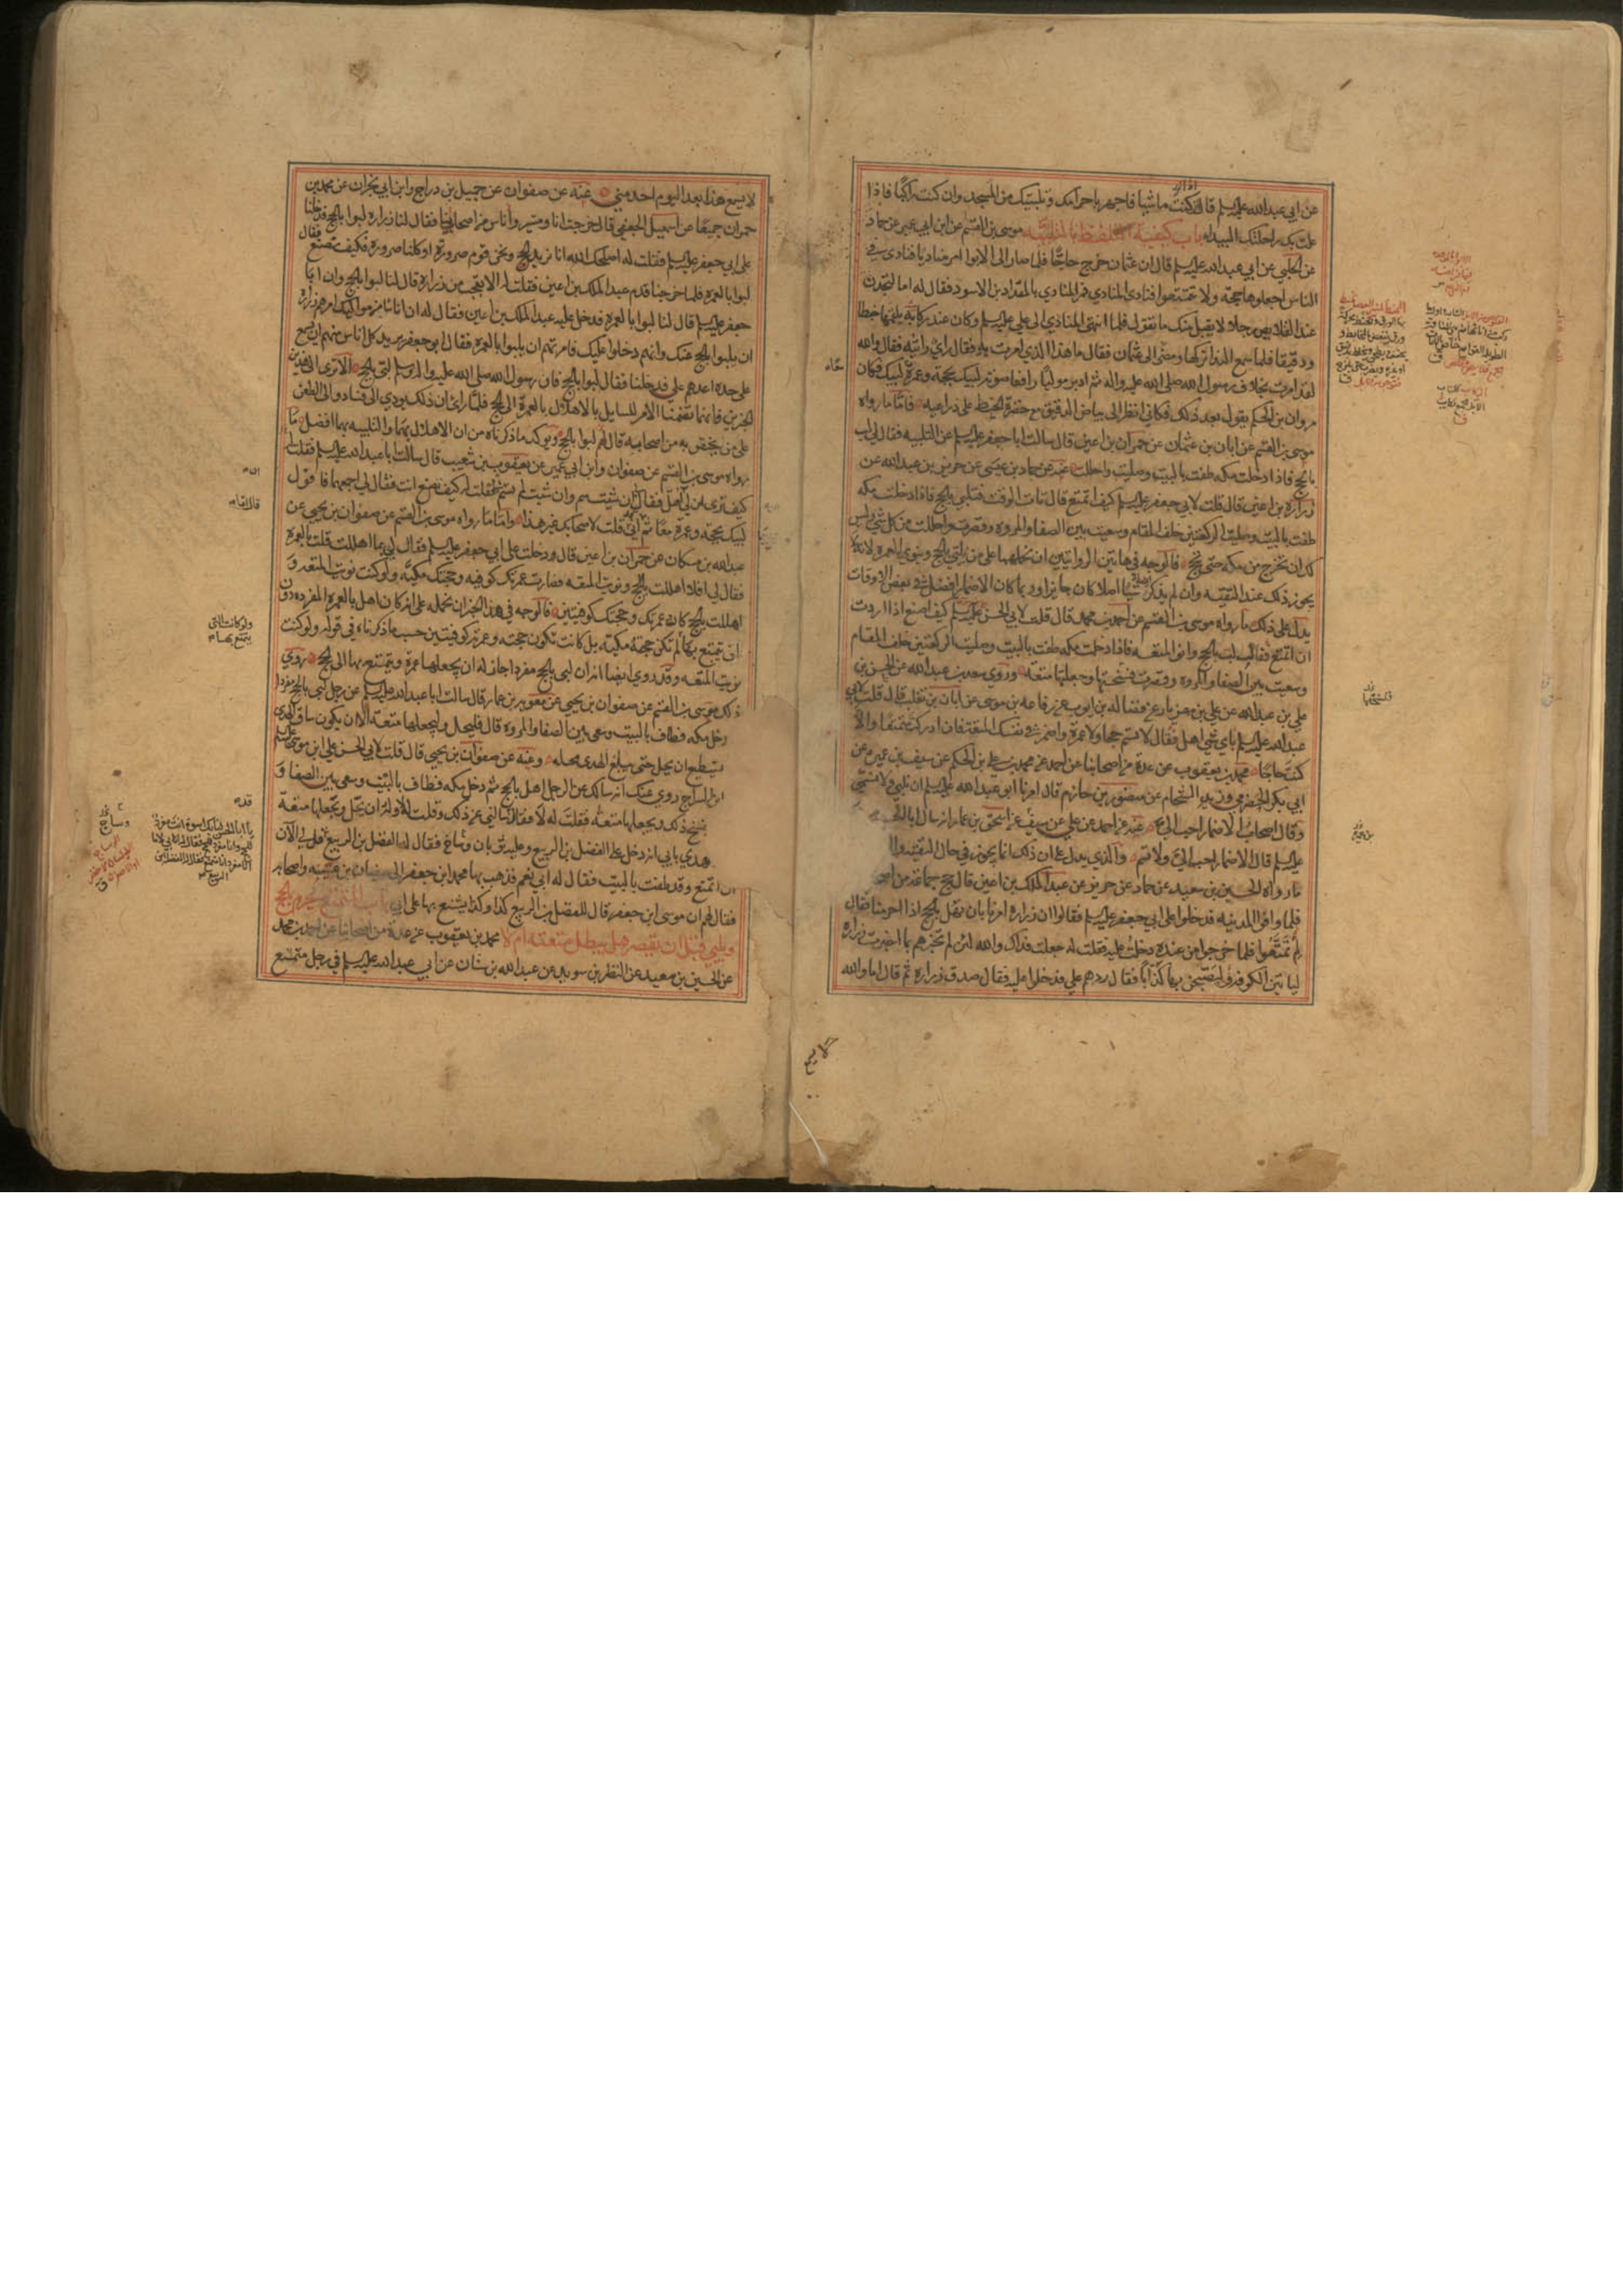 عن ابي عبدالله عليه السلام قال ان كنت ماشيا فاجهر باهلالك وتلبيتك من المسجد وان كنت راكبا فاذا
علت بك راحلتك البيداء باب كيفية التلفظ بالتلبية موسى بن القسم عن ابن ابي عمير عن حماد
عن الحلبي عن ابي عبدالله عليه السلام قال ان عثمان خرج حاجا فلما صار الى الابواء امر مناديا فنادى في
الناس اجعلوها حجة ولا تمتعوا فنادى المنادي فمر المنادي بالمقداد بن الاسود فقال له اما لتجدن
عند القلايص رجلا لا يقبل منك ما تقول فلما انتهى المنادي الى علي عليه السلام وكان عند ركائبه يلقمها خبطا
ودقيقا فلما سمع النداء تركها ومضى الى عثمان فقال ما هذا الذي امرت به فقال رأي رأيته فقال والله
لقد امرت بخلاف رسول الله صلى الله عليه واله ثم ادبر موليا رافعا صوته لبيك بحجة وعمرة لبيك فكان
مروان بن الحكم يقول بعد ذلك فكاني انظر الى بياض الدقيق مع خضرة الخبط على ذراعيه فاما ما رواه
موسى بن القسم عن ابان بن عثمان عن حمران بن اعين قال سالت ابا جعفر عليه السلام عن التلبية فقال لي لب
بالحج فاذا دخلت مكه طفت بالبيت وصليت واحللت عنه عن حماد بن عيسى عن حريز بن عبدالله عن
زرارة بن اعين قال قلت لابي جعفر عليه السلام كيف اتمتع قال تات الوقت فتلبي بالحج فاذا دخلت مكه
طفت بالبيت وصليت الركعتين خلف المقام وسعيت بين الصفا والمروه وقصرت واحللت من كل شي وليس
لك ان تخرج من مكه حتى تحج فالوجه في هاتين الروايتين ان نحملهما على من يلبي بالحج وينوي العمره لانه
يجوز ذلك عند التقيه وان لم يذكر شيئا اصلا كان جايزا وربما كان الاضمار افضل في بعض الاوقات
يدل على ذلك ما رواه موسى بن القسم عن احمد بن محمد قال قلت لابي الحسن عليه السلام كيف اصنع اذا اردت
ان اتمتع فقال لب بالحج وانو المتعه فاذا دخلت مكه طفت بالبيت وصليت الركعتين خلف المقام
وسعيت بين الصفا والمروه وقصرت ففسختها وجعلتها متعة وروي سعد بن عبدالله عن الحسن بن
علي بن عبدالله عن علي بن مهزيار عن فضاله بن ايوب عن رفاعه بن موسى عن ابان بن تغلب قال قلت لابي
عبدالله عليه السلام باي شي اهل فقال لا تسم حجا ولا عمرة واضمر في نفسك المتعة فان ادركت متمتعا والا
كنت حاجا محمد بن يعقوب عن عدة من اصحابنا عن احمد عن محمد بن علي بن الحكم عن سيف بن عميره عن
ابي بكر الحضرمي وزيد الشحام عن منصور بن حازم قال امرنا ابو عبدالله عليه السلام ان نلبي ولا نسمي
وقال اصحاب الاضمار احب الي عنه عن احمد عن علي عن سيف عن اسحق بن عمار انه سال ابا الحسن
عليه السلام قال الاضمار احب الي ولا تسم والذي يدل على ان ذلك انما يجوز في حال التقيه
ما رواه الحسين بن سعيد عن حماد عن حريز عن عبد الملك بن اعين قال حج جماعة من اصحابنا
فلما وافوا المدينه قدخلوا على ابي جعفر عليه السلام فقالوا ان زراره امرنا بان نهل بالحج اذا احرمنا فقال
لهم تمتعوا فلما خرجوا من عنده دخلت عليه فقلت له جعلت فداك والله لئن لم تخبرهم بما اخبرت زراره
لياتين الكوفه وليصبحن بها كذابا فقال ردهم علي فدخلوا عليه فقال صدق زراره ثم قال اما والله
لا يسمع هذا بعد اليوم احد مني عنه عن صفوان عن جميل بن دراج وابن ابي نجران عن محمد بن
حمران جميعا عن اسمعيل الجعفي قال خرجت انا وميسر واناس من اصحابنا فقال لنا زراره لبوا بالحج فدخلنا
على ابي جعفر عليه السلام فقلت له اصلحك الله انا نريد الحج ونحن قوم صرورة او كلنا صرورة فكيف نصنع فقال
لبوا بالعمره فلما خرجنا قدم عبد الملك بن اعين فقلت له الا تعجب من زراره قال لنا لبوا بالحج وان ابا
جعفر عليه السلام قال لنا لبوا بالعمره فدخل عليه عبد الملك بن اعين فقال له ان اناسا من مواليك امرهم زراره
ان يلبوا بالحج عنك وانهم دخلوا عليك فامرتهم ان يلبوا بالعمره فقال ابو جعفر يريد كل انسان منهم ان يسمع
على حدة اعدهم علي فدخلنا فقال لبوا بالحج فان رسول الله صلى الله عليه واله وسلم لبى بالحج الا ترى الى هذين
الخبرين فانهما تضمنا الامر للسايل بالاهلال بالعمرة الى الحج فلما راى ان ذلك يودي الى فساد والى الطعن
على من يختص به من اصحابه قال لهم لبوا بالحج ويوكد ما ذكرناه من ان الاهلال بهما والتلبيه بهما افضل ما
رواه موسى بن القسم عن صفوان وابن ابي عمير عن يعقوب بن شعيب قال سالت ابا عبدالله عليه السلام فقلت
كيف ترى لي ان اهل فقال ان شئت سم وان شئت لم تسم فقلت له كيف تصنع انت فقال لي اجمعهما فاقول
لبيك بحجة وعمرة معا ثم اني قلت لاصحابك غير هذا واما ما رواه موسى بن القسم عن صفوان بن يحيى عن
عبدالله بن مسكان عن حمران بن اعين قال دخلت على ابي جعفر عليه السلام فقال لي بما اهللت قلت بالعمرة
فقال لي افلا اهللت بالحج ونويت المتعه فصارت عمرتك كوفيه وحجتك مكية ولو كنت نويت المتعة و
اهللت بالحج كان عمرتك وحجتك كوفيتين فالوجه في هذا الخبر ان نحمله على انه كان اهل بالعمرة المفرده دون
ان يتمتع بها لم تكن حجته مكية بل كانت تكون حجته وعمرته كوفيتين حسب ما ذكرناه في قوله ولو كنت
نويت المتعه وقد روي ايضا انه ان لبى بالحج مفردا جاز له ان يجعلها عمرة ويتمتع بها الى الحج روي
ذلك موسى بن القسم عن صفوان بن يحيى عن معوية بن عمار قال سالت ابا عبدالله عليه السلام عن رجل لبى بالحج مفردا
دخل مكه فطاف بالبيت وسعى بين الصفا والمروه قال فليحل وليجعلها متعة الا ان يكون ساق الهدي
يستطيع ان يحل حتى يبلغ الهدي محله وعنه عن صفوان بن يحيى قال قلت لابي الحسن علي ابن موسى عليه السلام
ابن السراج روى عنك انه سالك عن الرجل اهل بالحج ثم دخل مكه فطاف بالبيت وسعى بين الصفا و
يفسخ ذلك ويجعلها متعة فقلت له لا فقال قد سالني عن ذلك وقلت له لا وله ان يحل ويجعلها متعة
عهدي بابي انه دخل على الفضل بن الربيع وعليه ثوبان وساج فقال له الفضل بن الربيع
ان اتمتع وقد طفت بالبيت فقال له ابي نعم فذهب بها محمد ابن جعفر الى سفيان بن عيينه واصحابه
فقال لهم ان موسى ابن جعفر قال للفضل بن الربيع كذا وكذا يشنع بها على ابي باب المتمتع يحرم بالحج
ويلبي قبل ان يقصر هل يبطل متعته ام لا محمد بن يعقوب عن عدة من اصحابنا عن احمد بن محمد
عن الحسين بن سعيد عن النضر بن سويد عن عبدالله بن سنان عن ابي عبدالله عليه السلام في رجل متمتع
ولو كانت التي
يتمتع بها